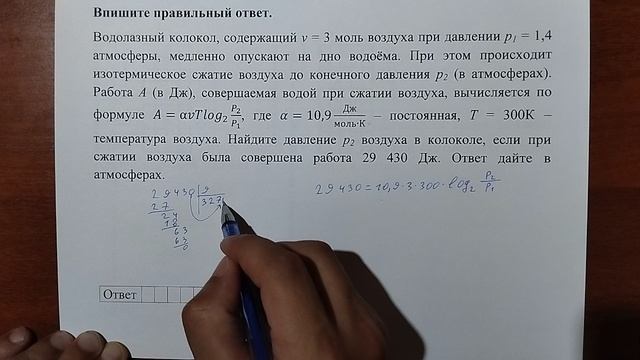 Впишите правильный ответ.
Водолазный колокол, содержащий ν = 3 моль воздуха при давлении p₁ = 1,4
атмосферы, медленно опускают на дно водоёма. При этом происходит
изотермическое сжатие воздуха до конечного давления p₂ (в атмосферах).
Работа A (в Дж), совершаемая водой при сжатии воздуха, вычисляется по
формуле A = ανTlog₂ P₂/P₁, где α = 10,9 Дж/моль·К – постоянная, T = 300К –
температура воздуха. Найдите давление p₂ воздуха в колоколе, если при
сжатии воздуха была совершена работа 29 430 Дж. Ответ дайте в
атмосферах.
29430 | 9
27 327
24
18
63
63
0
29 430 = 10,9 · 3 · 300 · log₂ P₂/P₁
Ответ